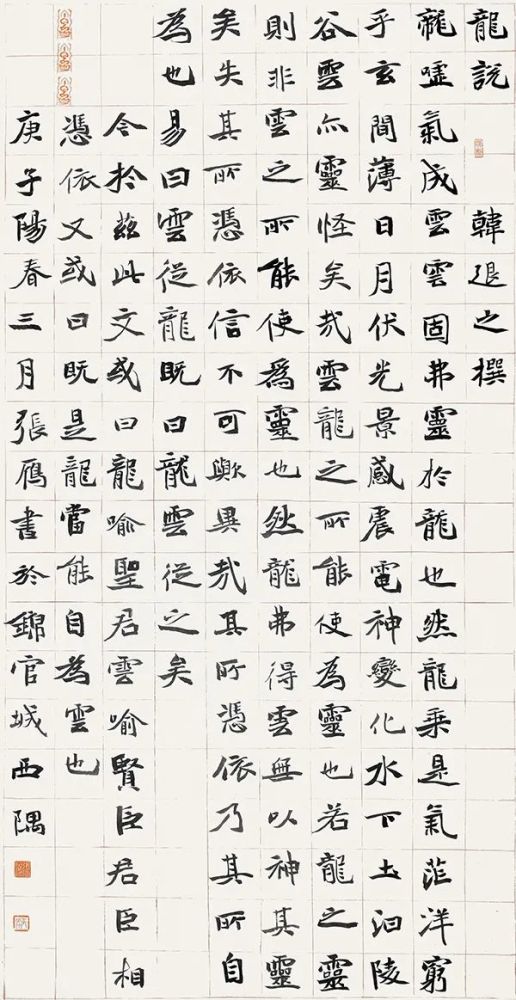 龍説 韓退之撰
龍噓氣成雲雲固弗靈於龍也然龍乘是氣茫洋窮
乎玄間薄日月伏光景感震電神變化水下土汩陵
谷雲亦靈怪矣哉雲龍之所能使為靈也若龍之靈
則非雲之所能使爲靈也然龍弗得雲無以神其靈
矣失其所憑依信不可歟異哉其所憑依乃其所自
為也易曰雲從龍既曰龍雲從之矣
今於茲此文或曰龍喻聖君雲喻賢臣君臣相
憑依又或曰既是龍當能自為雲也
庚子陽春三月張鴈書於錦官城西隅